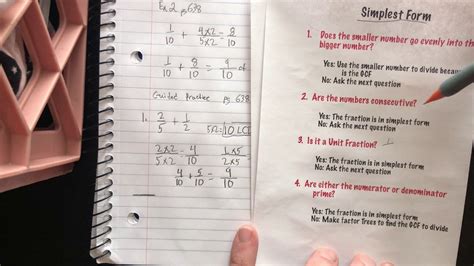 Ex 2 pg 638
1/10 + 4x2/5x2 = 8/10
1/10 + 8/10 = 9/10 of
Guided Practice pg 638
1. 2/5 + 1/2 5x2= 10 LCD
2x2/5x2 = 4/10 1x5/2x5
4/10 + 5/10 = 9/10
Simplest Form
1. Does the smaller number go evenly into the
bigger number?
Yes: Use the smaller number to divide because
is the GCF
No: Ask the next question
2. Are the numbers consecutive?
Yes: The fraction is in simplest form
No: Ask the next question
3. Is it a Unit Fraction? 1
Yes: The fraction is in simplest form
No: Ask the next question
4. Are either the numerator or denominator
prime?
Yes: The fraction is in simplest form
No: Make factor Trees to find the GCF to divide